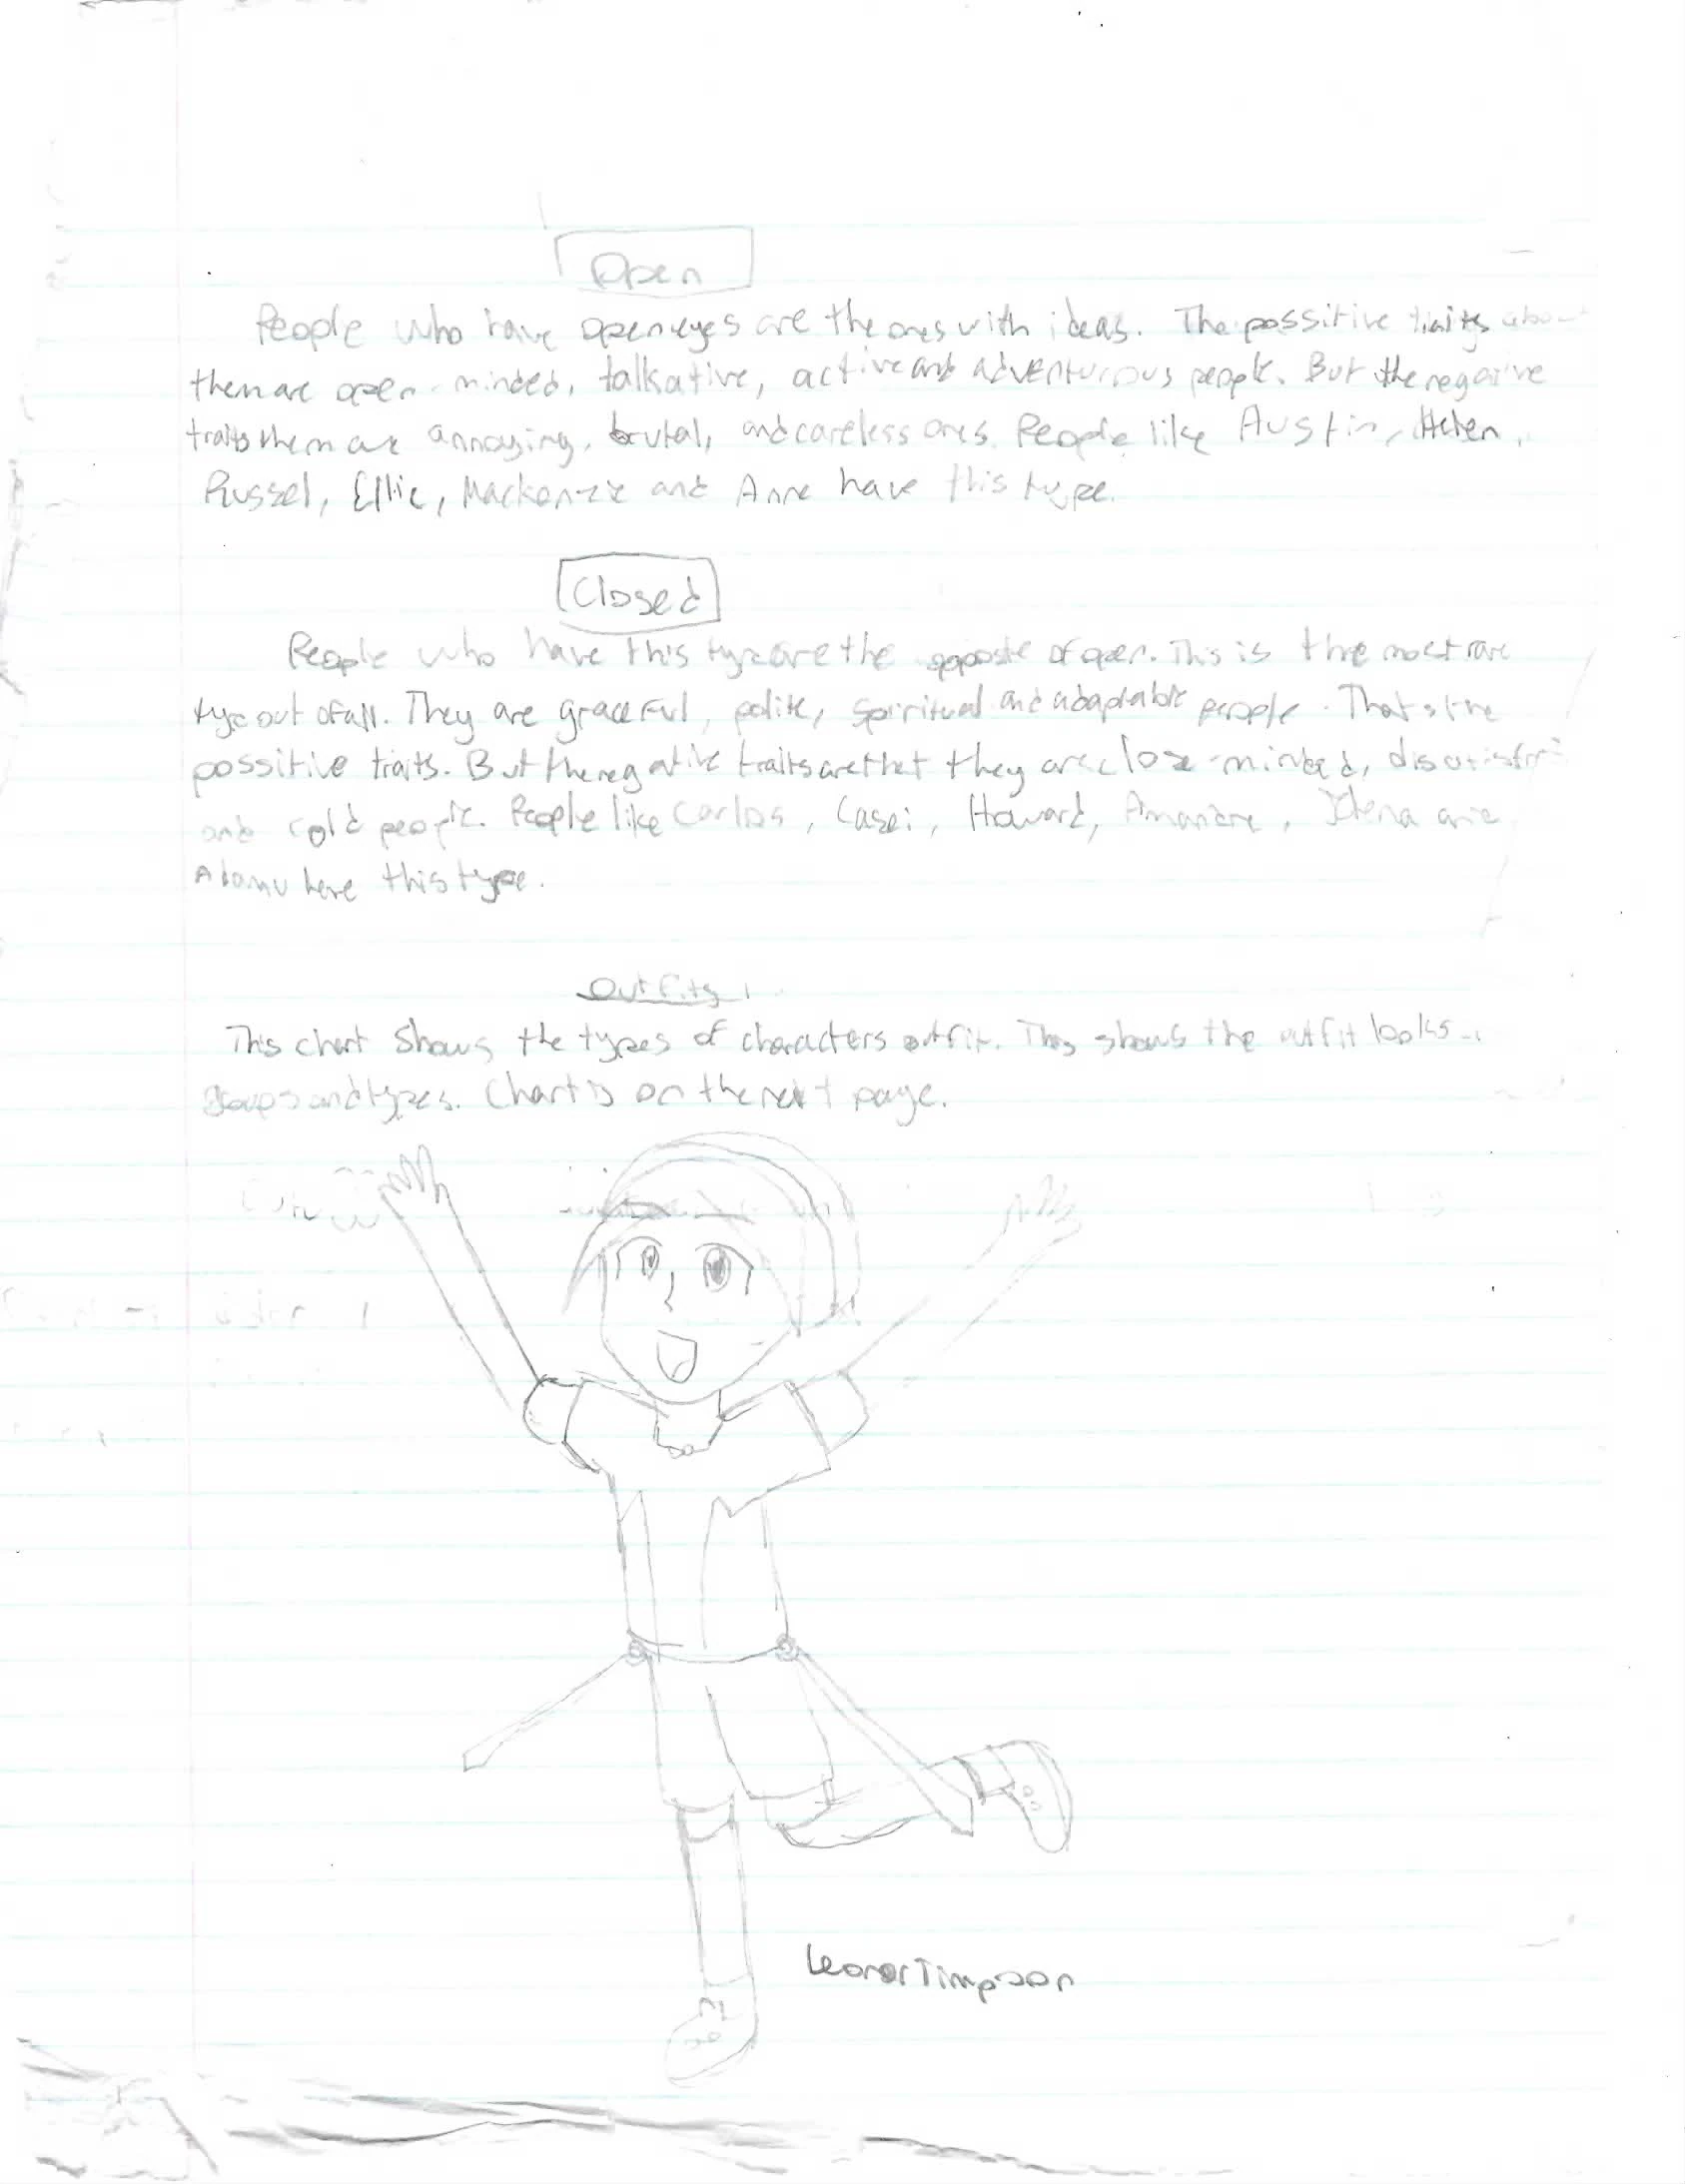 Open
People who have open eyes are the ones with ideas. The possitive traits about
them are open-minded, talkative, active and adventurous people. But the negative
traits them are annoying, brutal, and careless ones. People like Austin, Helen,
Russel, Ellie, Mackenzie and Anne have this type.
Closed
People who have this type are the opposite of open. This is the most rare
type out of all. They are graceful, polite, spiritual and adaptable people. That's the
possitive traits. But the negative traits are that they are close-minded,
and cold people. People like Carlos, Casei, Howard,
have this type.
Outfits
This chart shows the types of characters outfit. This shows the outfit looks
groups and types. Chart is on the next page.
Leonor Timpson